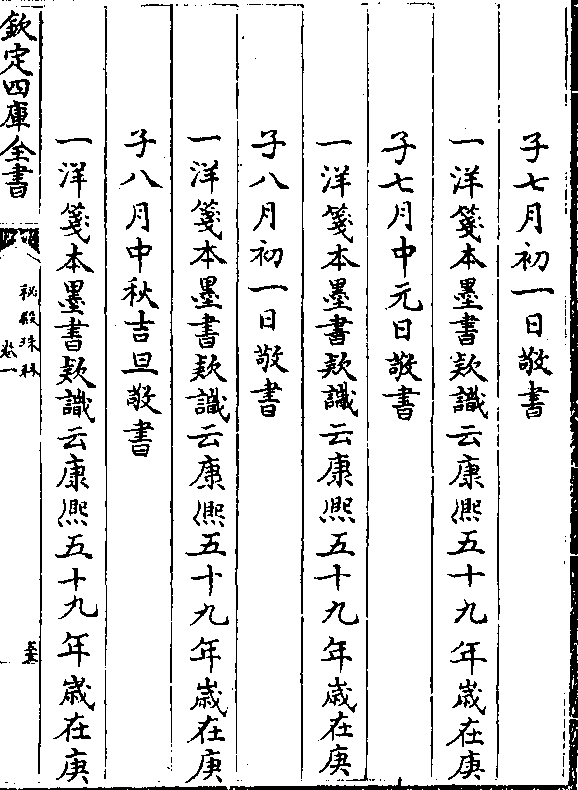 子七月初一日敬書
一洋箋本墨書欵識云康熈五十九年歲在庚
子七月中元日敬書
一洋箋本墨書欵識云康熈五十九年歲在庚
子八月初一日敬書
一洋箋本墨書欵識云康熈五十九年歲在庚
子八月中秋吉旦敬書
一洋箋本墨書欵識云康熈五十九年歲在庚
欽定四庫全書
秘殿珠林
卷一